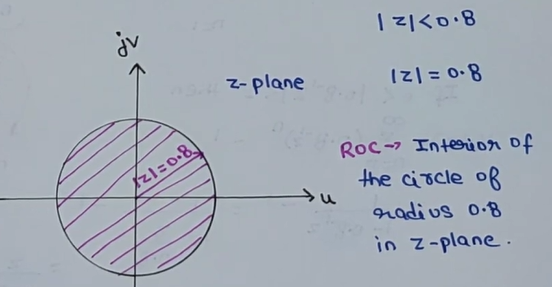 |z|<0.8
jv
z-plane
|z|=0.8
|z|=0.8
u
ROC→ Interior of
the circle of
radius 0.8
in z-plane.